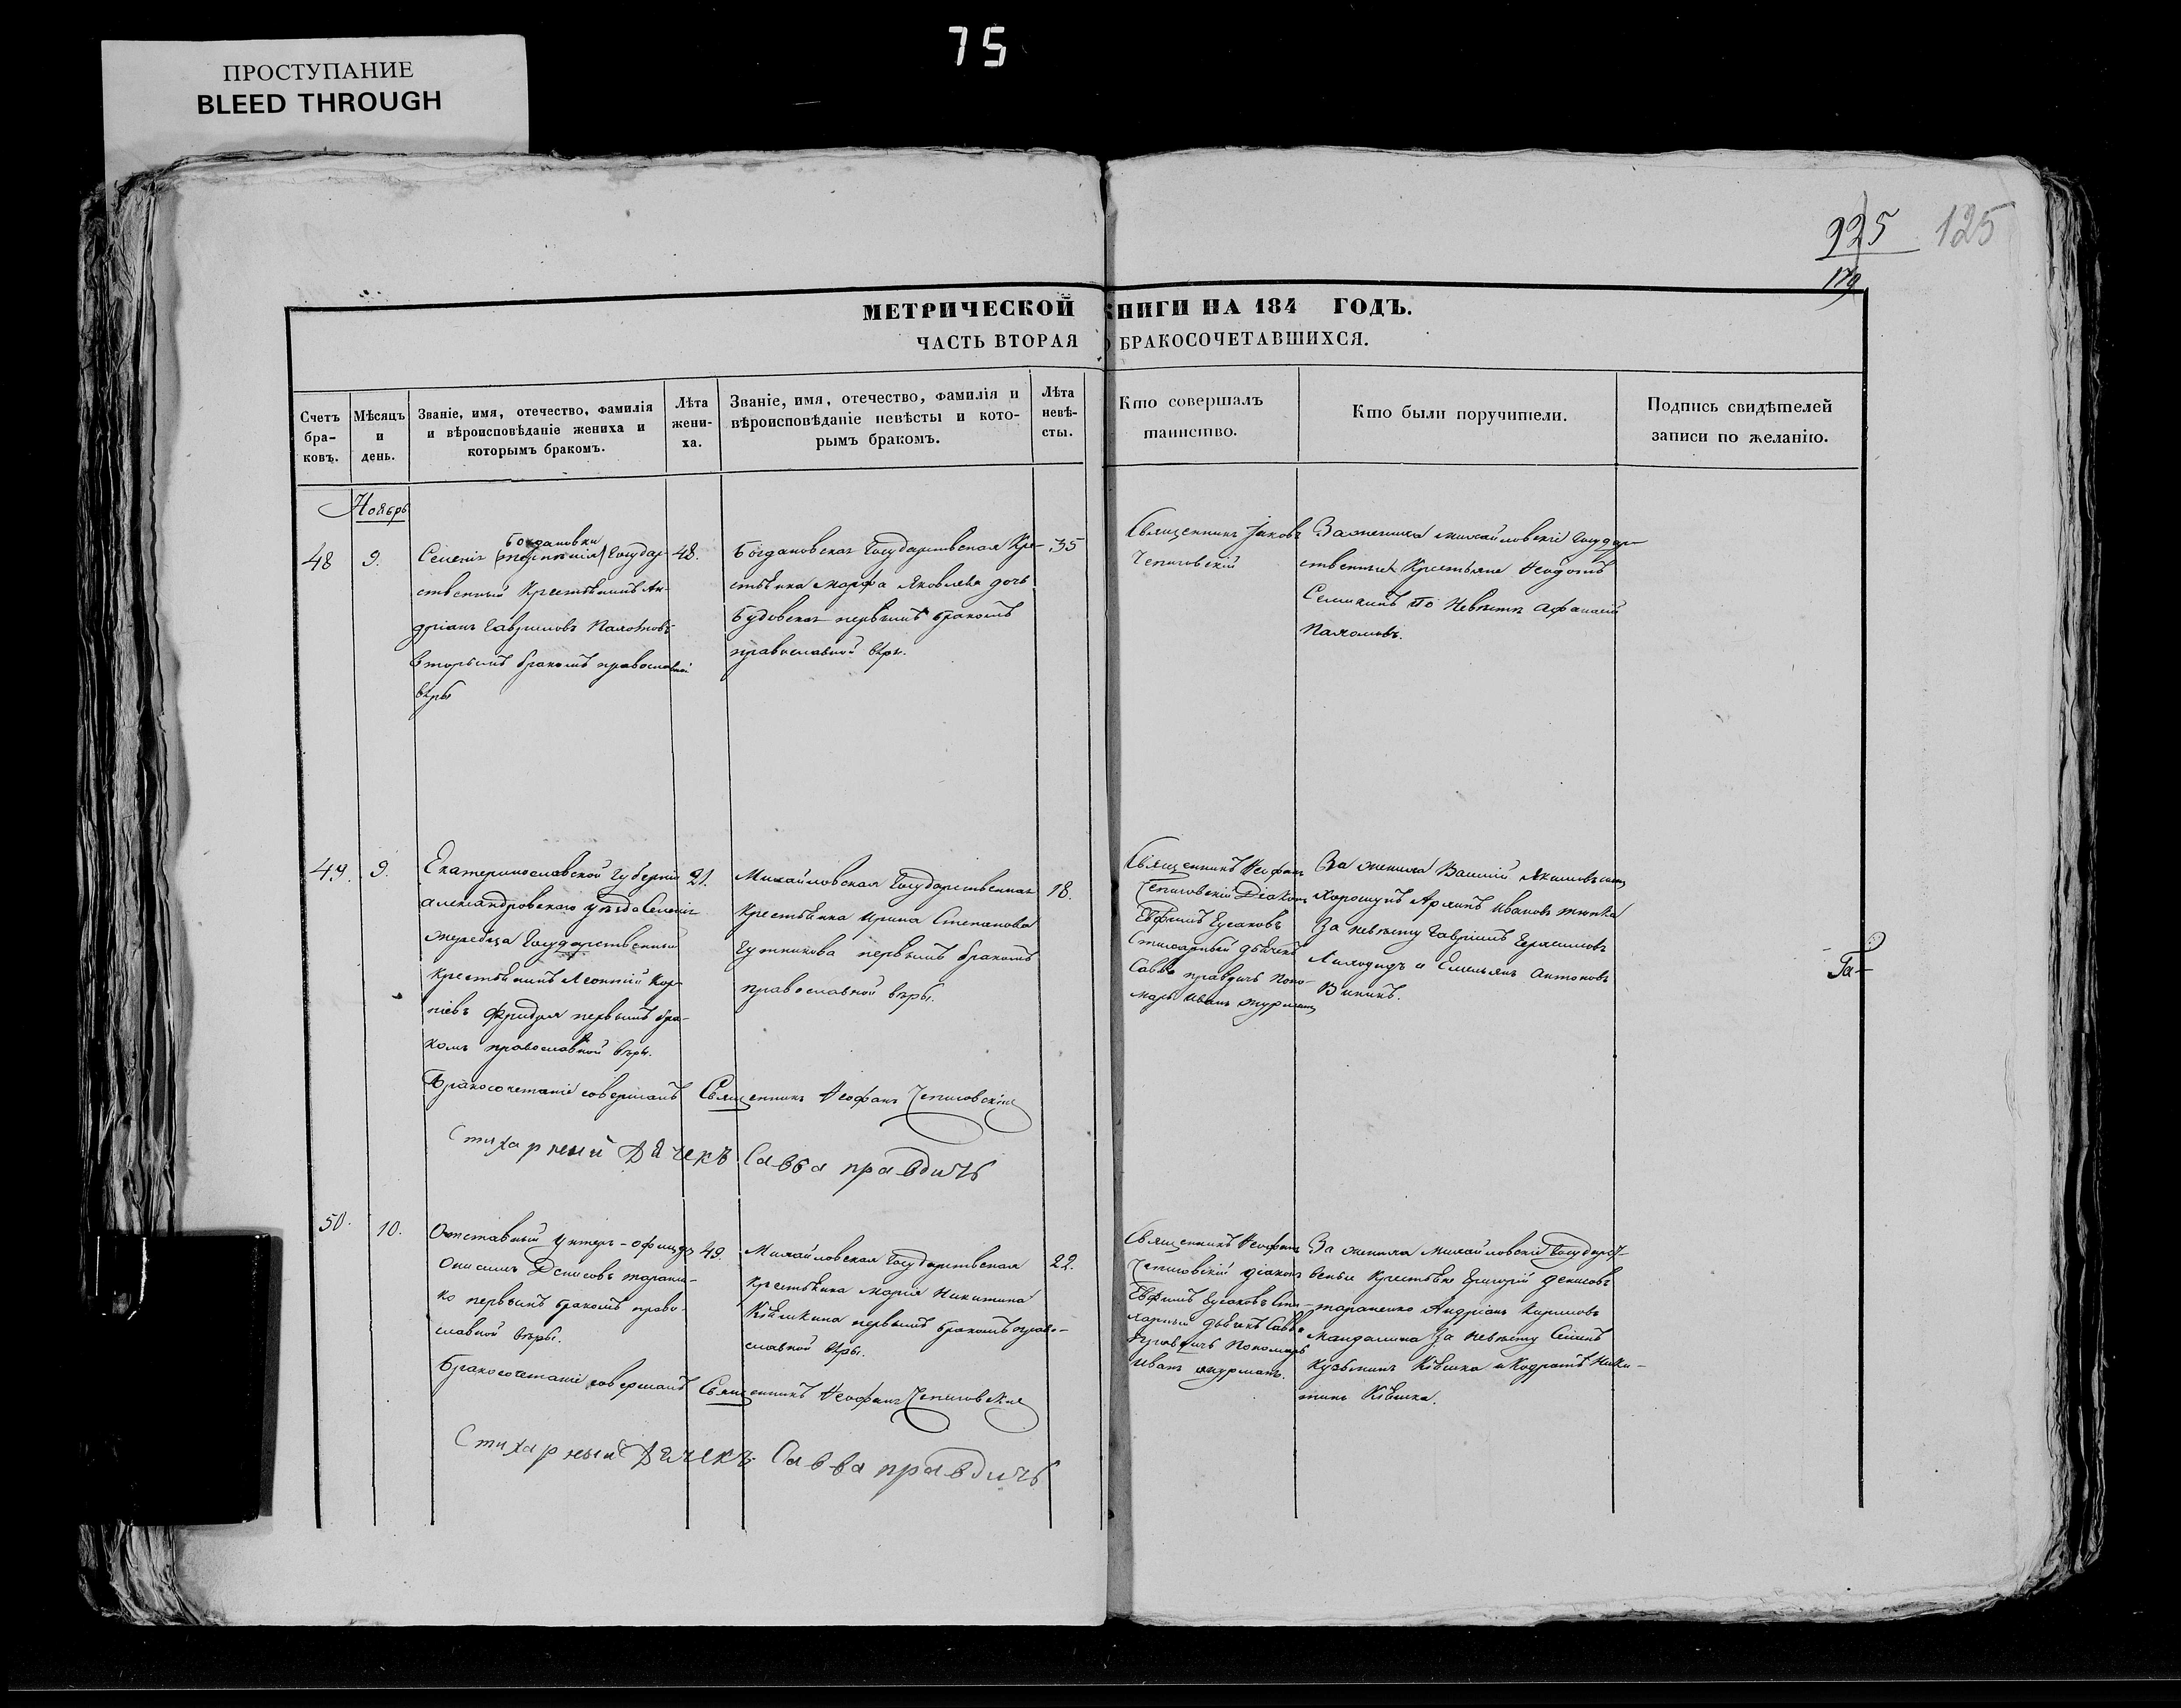 75
ПРОСТУПАНИЕ
BLEED THROUGH
925 125
179
МЕТРИЧЕСКОЙ КНИГИ НА 184 ГОДЪ.
ЧАСТЬ ВТОРАЯ О БРАКОСОЧЕТАВШИХСЯ.
Счетъ
бра-
ковъ.
Мѣсяцъ
и
день.
Званіе, имя, отечество, фамилія
и вѣроисповѣданіе жениха и
которымъ бракомъ.
Лѣта
жени-
ха.
Званіе, имя, отечество, фамилія и
вѣроисповѣданіе невѣсты и кото-
рымъ бракомъ.
Лѣта
невѣ-
сты.
Кто совершалъ
таинство.
Кто были поручители.
Подпись свидѣтелей
записи по желанію.
Ноябрь
48
9.
Богдановки
Селенія Государ-
ственный Крестьянинъ Ан-
дріанъ Гавриловъ
вторымъ бракомъ православной
вѣры
48.
Богдановская Государствская Кре-
стьянка Марфа Яковлева дочь
Будовская первымъ бракомъ
православной вѣры.
35
Священникъ Іаковъ
Чепиговскій
За жениха михайловскіе Государ-
ственные Крестьяне Ѳеодотъ
невѣстѣ Афанасій
Пахомовъ.
49.
9.
Екатеринославской Губерніи
александровскаго уѣзда Селенія
жеребца Государственный
крестьянинъ Леонтій Кор-
ніевъ первымъ бра-
комъ православной вѣры.
21.
Михайловская Государственная
крестьянка Ирина Степанова
Гутникова первымъ бракомъ
православной вѣры.
18.
Священникъ Ѳеофанъ
Чепиговскій Діаконъ
Евфимъ Гусаковъ
Стихарный дьячекъ
Савва правдичь Поно-
марь Иванъ журманъ
За жениха Василій Якимовъ сынъ
Хорошунъ Ивановъ
За невѣсту Гавріилъ Герасимовъ
и Емельянъ Антоновъ
Виникъ.
Бракосочетаніе совершалъ Священникъ Ѳеофанъ Чепиговскій
Стихарный Дячекъ Савва правдичь
50.
10.
Отставный унтеръ-офицеръ
Онисимъ Денисовъ таранен-
ко первымъ бракомъ право-
славной вѣры.
49.
Михайловская Государствская
крестьянка Марія Никитина
первымъ бракомъ право-
славной вѣры.
22.
Священникъ Ѳеофанъ
Чепиговскій діаконъ
Евфимъ Гусаковъ Сти-
харный дьячекъ Савва
Правдичь Пономарь
Иванъ журманъ.
За жениха Михайловскіе Государст-
венные крестьяне Григорій денисовъ
тараненко Андріанъ Кириловъ
За невѣсту Семенъ
Кузьминъ Ківшка и Кодратъ Ники-
тинъ Ківшка.
Бракосочетаніе совершалъ Священникъ Ѳеофанъ Чепиговскій
Стихарный Дячекъ Савва правдичь